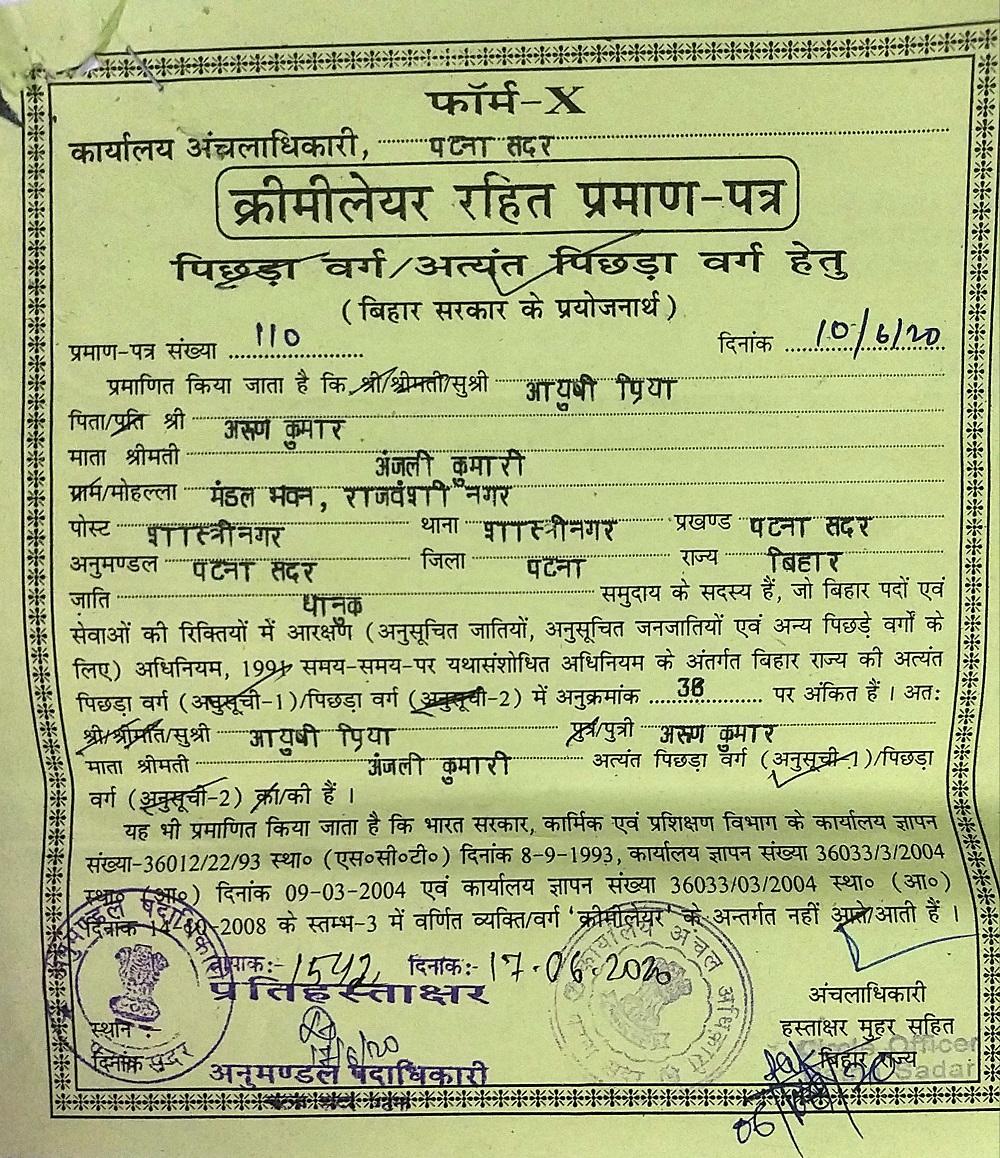 फॉर्म-X
कार्यालय अंचलाधिकारी, पटना सदर
क्रीमीलेयर रहित प्रमाण-पत्र
पिछड़ा वर्ग/अत्यंत पिछड़ा वर्ग हेतु
(बिहार सरकार के प्रयोजनार्थ)
प्रमाण-पत्र संख्या 110 दिनांक 10/6/20
प्रमाणित किया जाता है कि श्री/श्रीमती/सुश्री आयुषी प्रिया
पिता/पति श्री अरुण कुमार
माता श्रीमती अंजली कुमारी
ग्राम/मोहल्ला मंडल भवन, राजवंशी नगर
पोस्ट शास्त्रीनगर थाना शास्त्रीनगर प्रखण्ड पटना सदर
अनुमण्डल पटना सदर जिला पटना राज्य बिहार
जाति धानुक समुदाय के सदस्य हैं, जो बिहार पदों एवं
सेवाओं की रिक्तियों में आरक्षण (अनुसूचित जातियों, अनुसूचित जनजातियों एवं अन्य पिछड़े वर्गों के
लिए) अधिनियम, 1991 समय-समय-पर यथासंशोधित अधिनियम के अंतर्गत बिहार राज्य की अत्यंत
पिछड़ा वर्ग (अनुसूची-1)/पिछड़ा वर्ग (अनुसूची-2) में अनुक्रमांक 38 पर अंकित हैं। अतः
श्री/श्रीमति/सुश्री आयुषी प्रिया पुत्र/पुत्री अरुण कुमार
माता श्रीमती अंजली कुमारी अत्यंत पिछड़ा वर्ग (अनुसूची-1)/पिछड़ा
वर्ग (अनुसूची-2) का/की हैं।
यह भी प्रमाणित किया जाता है कि भारत सरकार, कार्मिक एवं प्रशिक्षण विभाग के कार्यालय ज्ञापन
संख्या-36012/22/93 स्था० (एस०सी०टी०) दिनांक 8-9-1993, कार्यालय ज्ञापन संख्या 36033/3/2004
स्था० (आ०) दिनांक 09-03-2004 एवं कार्यालय ज्ञापन संख्या 36033/03/2004 स्था० (आ०)
दिनांक 14-10-2008 के स्तम्भ-3 में वर्णित व्यक्ति/वर्ग 'क्रीमीलेयर' के अन्तर्गत नहीं आते/आती हैं।
अनुमण्डल पदाधिकारी
ज्ञापांक:- 1542 दिनांक:- 17.06.2020
प्रतिहस्ताक्षर
कार्यालय अंचल अधिकारी
अंचलाधिकारी
स्थान :-
हस्ताक्षर मुहर सहित
17/6/20
Circle Officer
दिनांक
सदर
बिहार राज्य
Sadar
अनुमण्डल पदाधिकारी